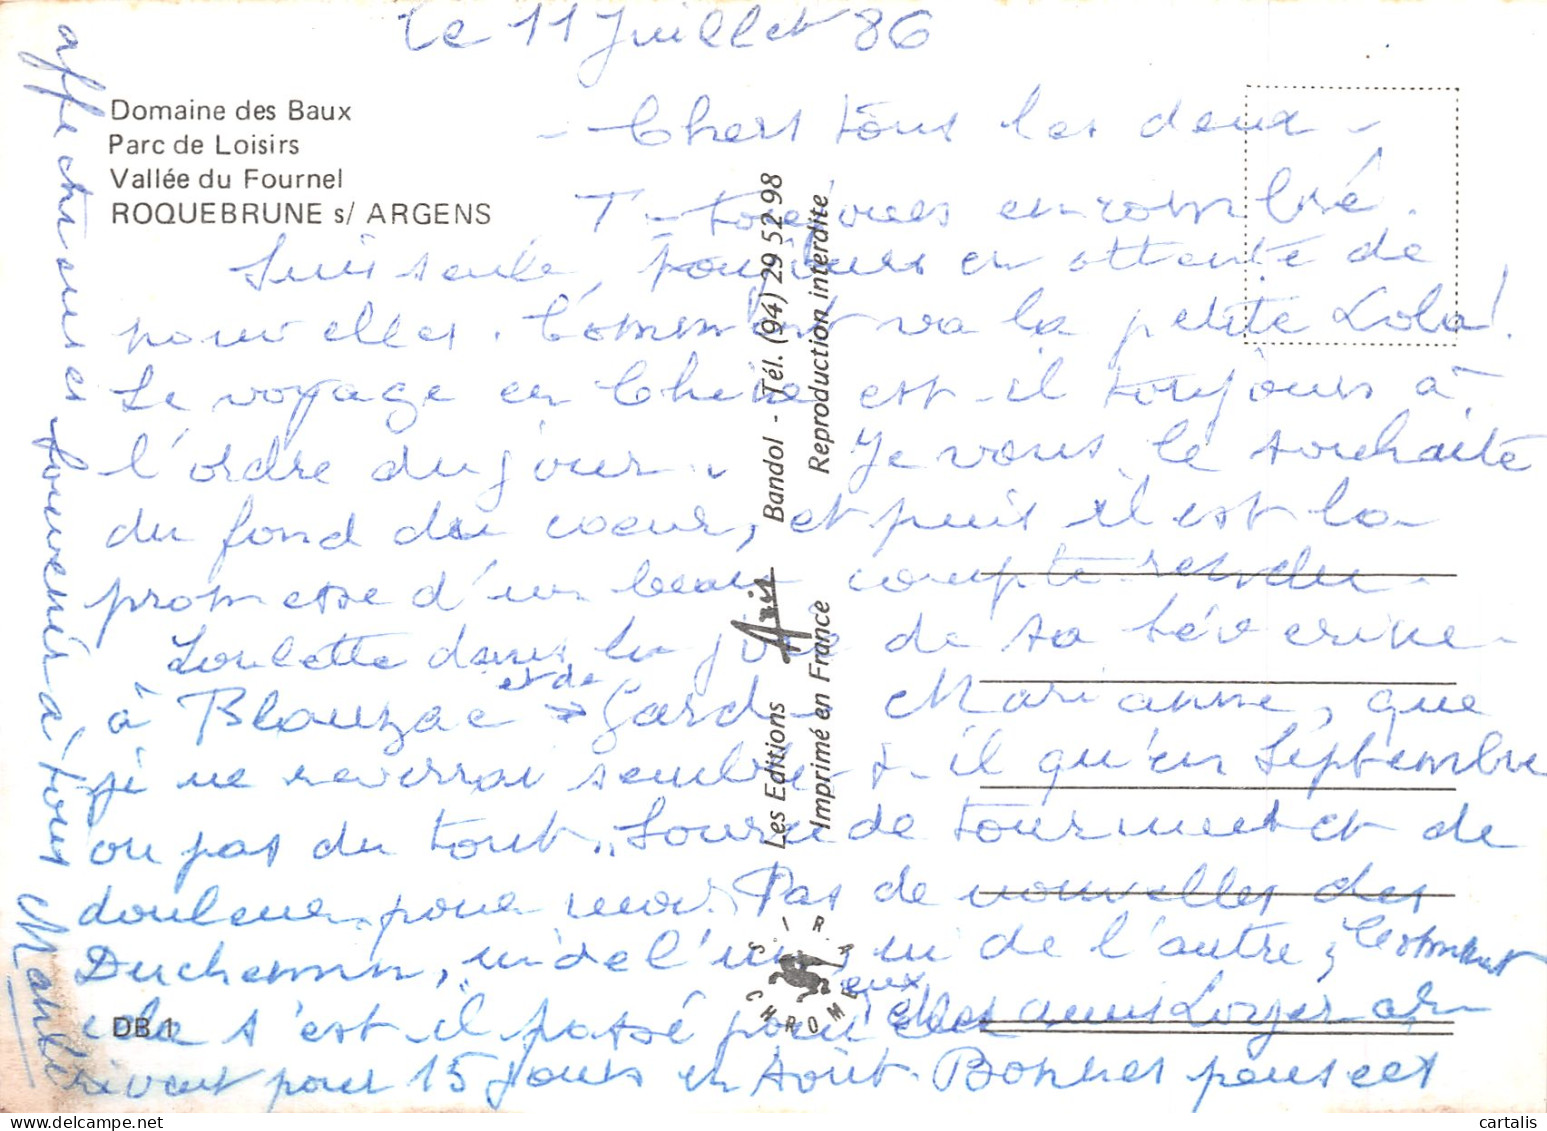 Le 11 Juillet 86
Domaine des Baux
Parc de Loisirs
Vallée du Fournel
ROQUEBRUNE s/ ARGENS
- Chers tous les deux -
T - toujours enrombré.
Suis seule, toujours en attente de
nouvelles. Comment va la petite Lola!
Le voyage en Chine est-il toujours à
l'ordre du jour. Je vous le souhaite
du fond du coeur, et puis il est la
promesse d'un beau compte rendu.
Loulette dans la joie de sa Séverine
à Blauzac et de Garde Marianne, que
je ne reverrai semble-t-il qu'en Septembre
ou pas du tout. Source de tourment et de
douleur pour moi. Pas de nouvelles des
Duchemin, ni de l'un, ni de l'autre; Comment
cela s'est il passé pour eux Mes amis Loyer ar-
rivent pour 15 jours en Août. Bonnes pensées
affectueuses souvenir à tous
Les Editions Aris Bandol - Tél. (94) 29 52 98
Imprimé en France Reproduction interdite
SIRA CHROME
DB 1